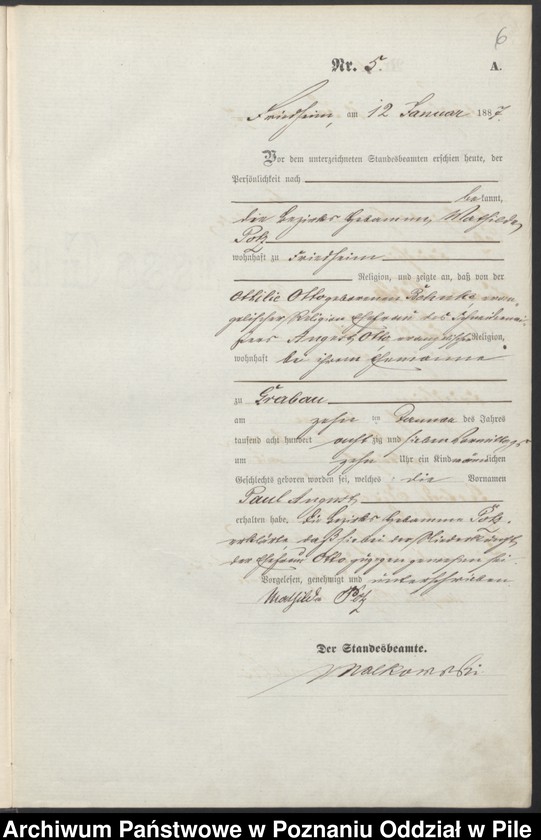 6
Nr. 5. A.
Friedheim, am 12 Januar 1887.
Vor dem unterzeichneten Standesbeamten erschien heute, der
Persönlichkeit nach
bekannt,
die Bezirks Hebamme, Mathilde
wohnhaft zu Friedheim
Religion, und zeigte an, daß von der
Ottilie Otto geborenen evan-
gelischer Religion Ehefrau des
August Otto, evangelischer Religion,
wohnhaft bei ihrem Ehemanne
zu Grabau
am zehn ten Januar des Jahres
tausend acht hundert acht zig und sieben Vormittags
um zehn Uhr ein Kind männlichen
Geschlechts geboren worden sei, welches die Vornamen
Paul August
erhalten habe. Die Bezirks Hebamme
erklärte daß sie bei der Niederkunft
der Ehefrau Otto zugegen gewesen sei.
Vorgelesen, genehmigt und unterschrieben
Mathilde
Der Standesbeamte.
Malkowski
Archiwum Państwowe w Poznaniu Oddział w Pile